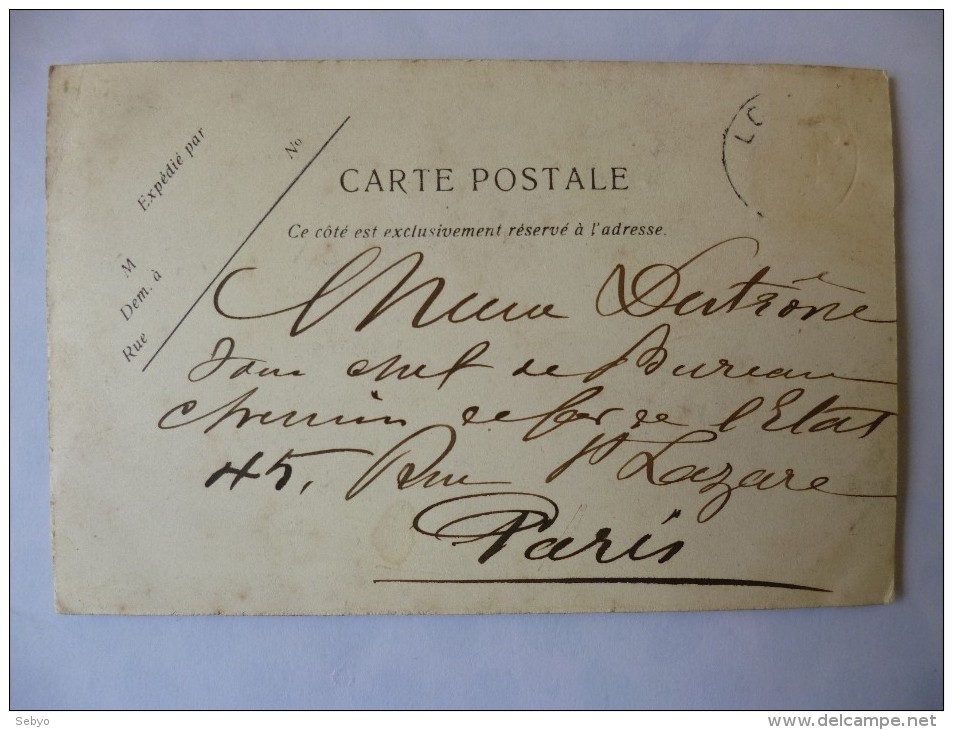 Expédié par
No
M
Dem. à
Rue
CARTE POSTALE
Ce côté est exclusivement réservé à l'adresse.
LO
Dutrône
Sous chef de Bureau
chemin de fer de l'Etat
45, Rue St Lazare
Paris
Sebyo
www.delcampe.net